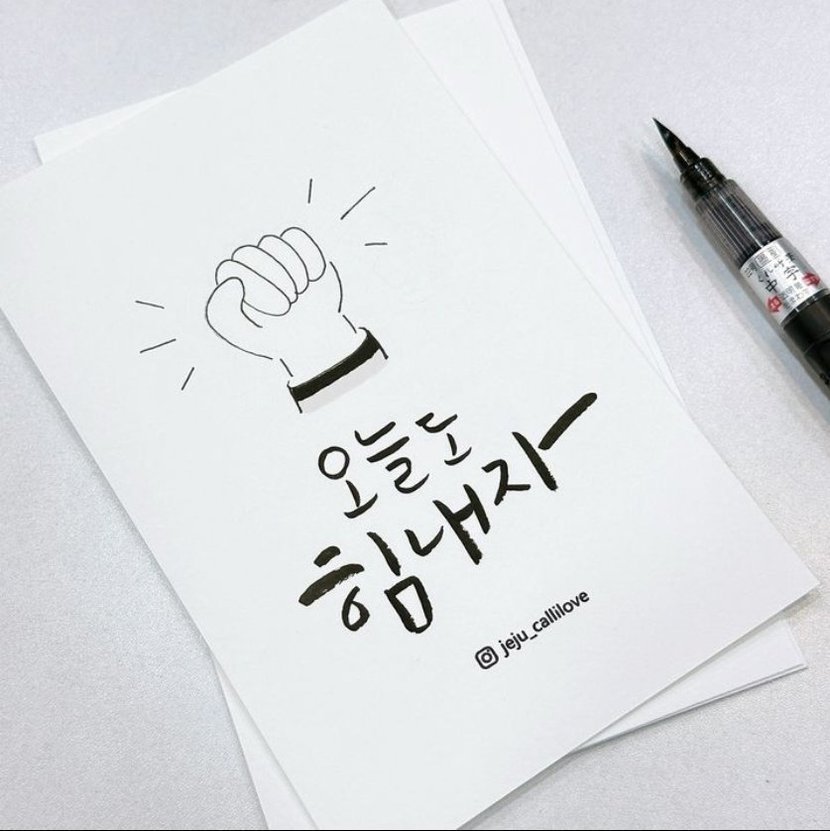 오늘도
힘내자
jeju_callilove
中字